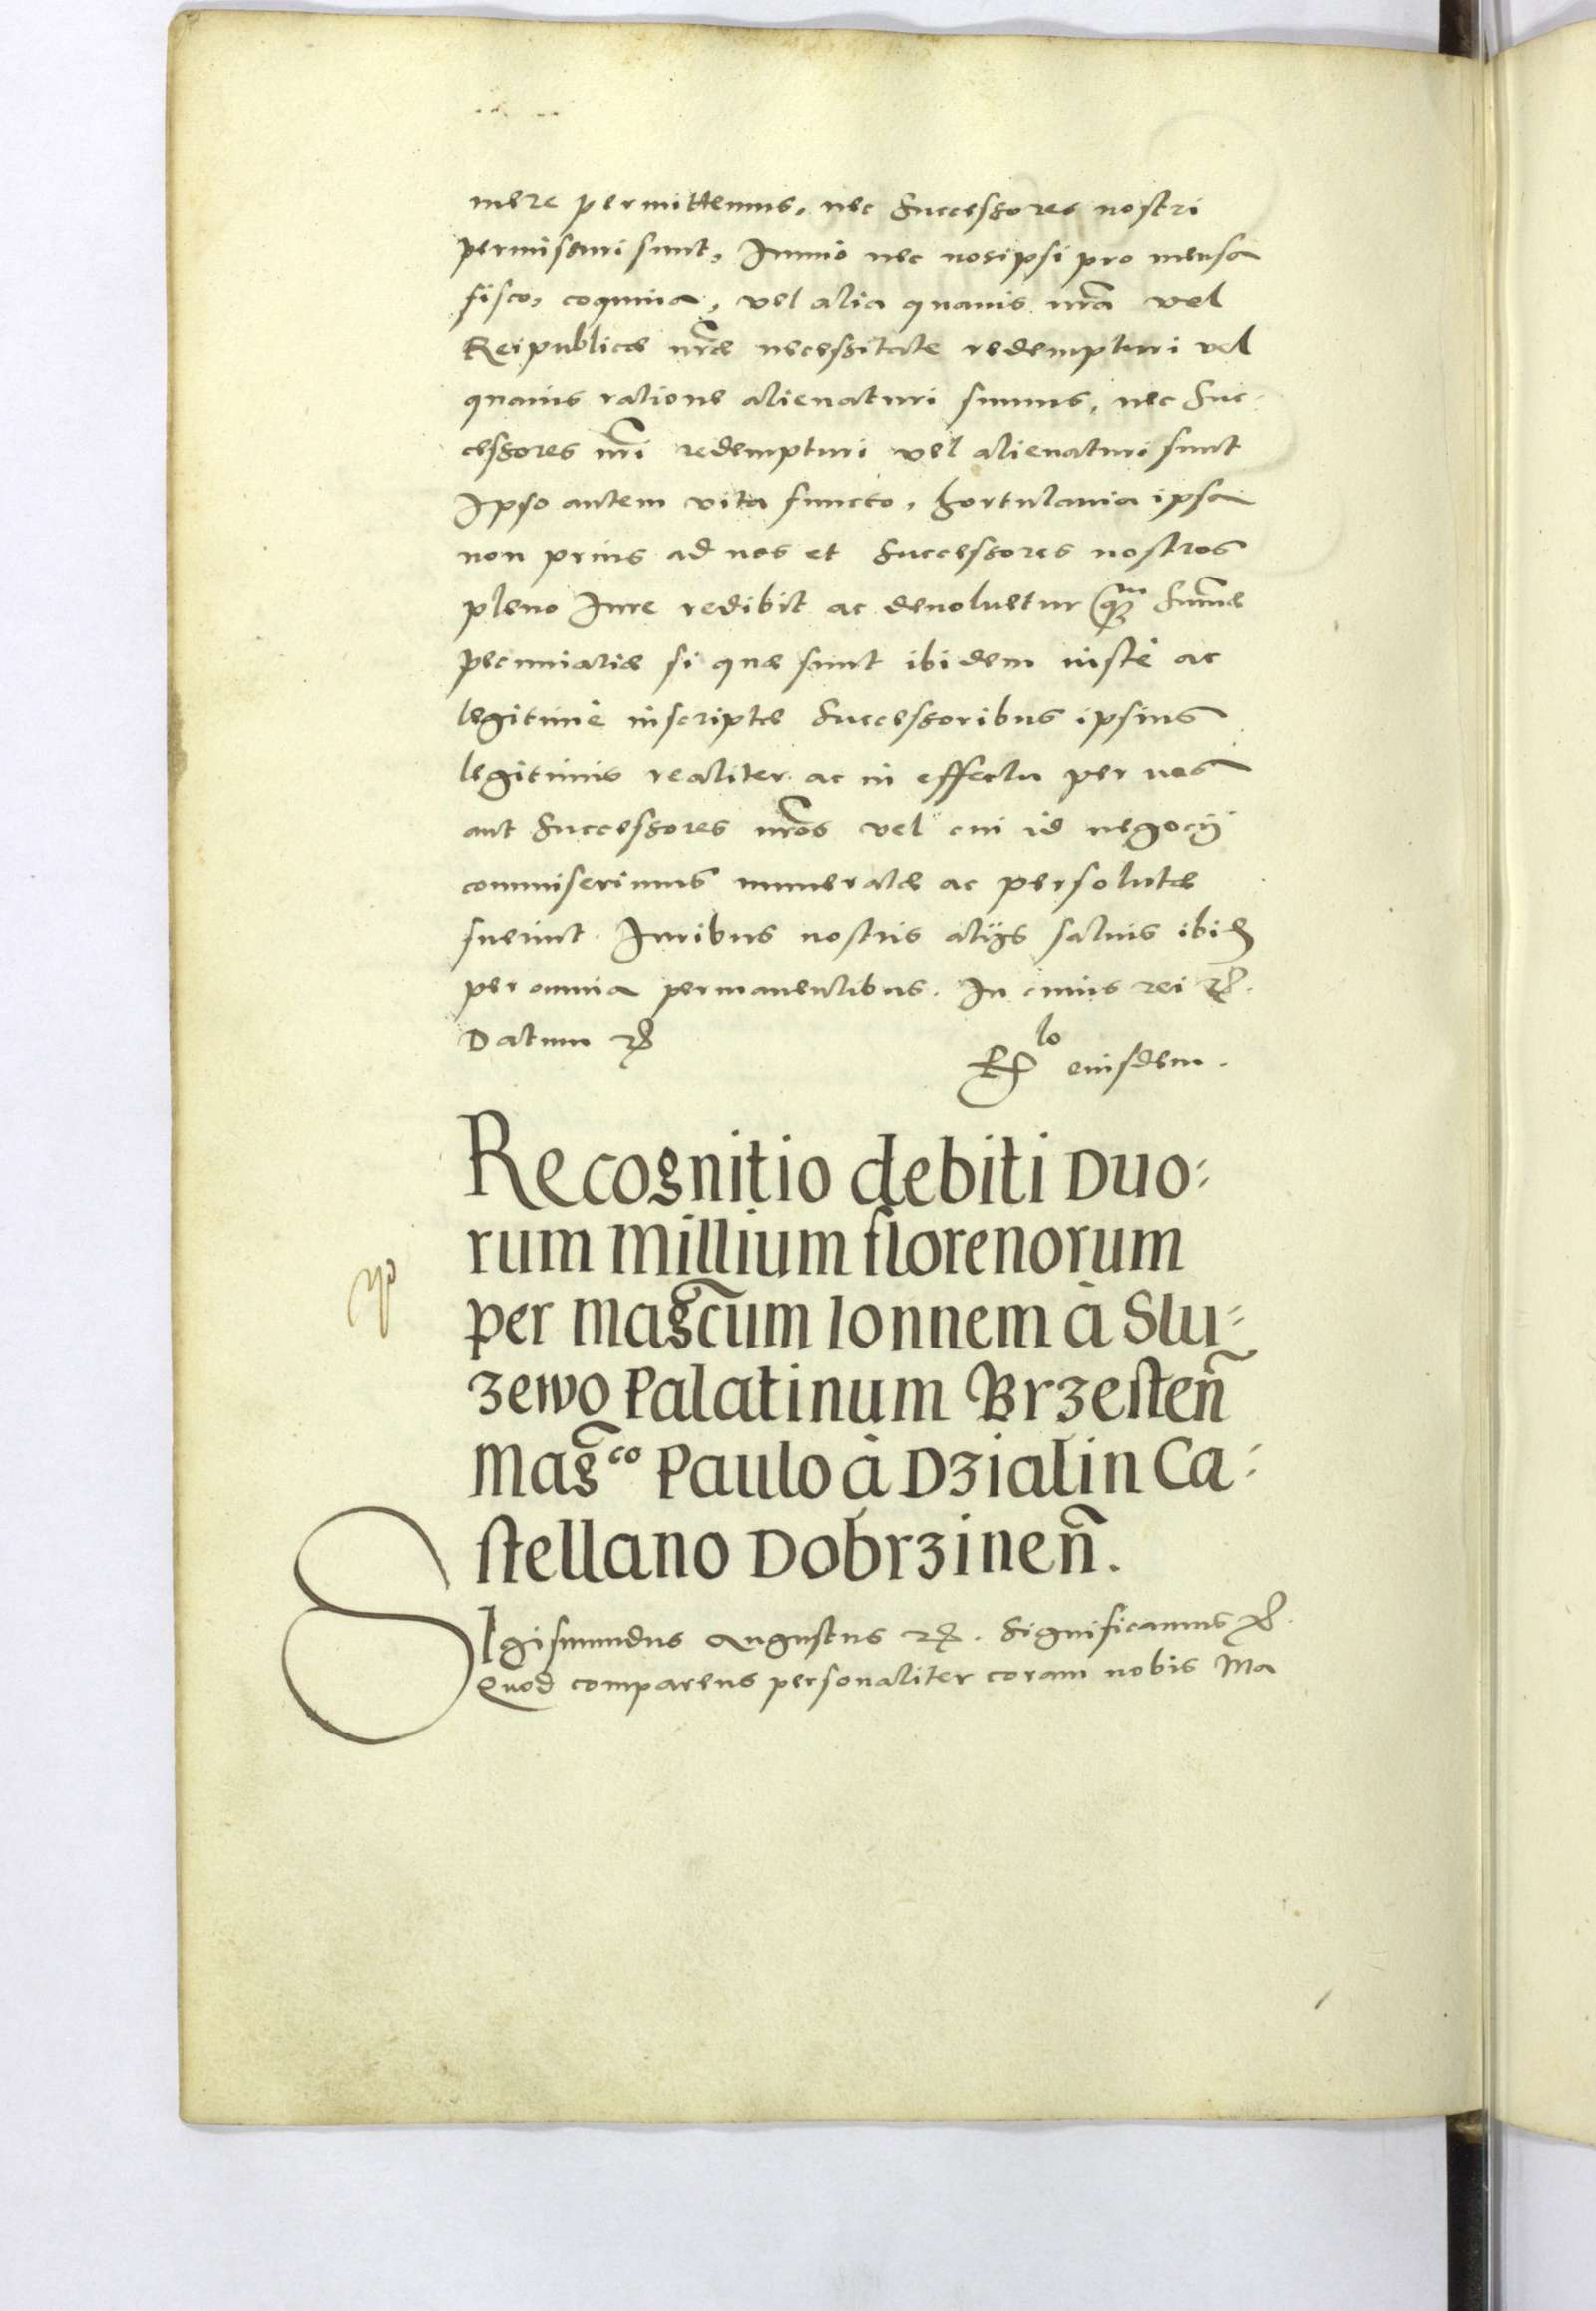 mere permittemus, nec Successores nostri
permissuri sunt, Immò nec nosipsi pro mensa
fisco, coquina, vel alia quauis nra vel
Reipublicæ nræ necessitate redempturi vel
quauis ratione alienaturi sumus, nec Suc-
cessores nri redempturi vel alienaturi sunt
Ipso autem vita functo, hortulania ipsa
non prius ad nos et Successores nostros
pleno Iure redibit ac deuoluetur Summæ
pecuniariæ si quæ sunt ibidem iustè ac
legitimè inscriptæ Successoribus ipsius
legitimis realiter ac in effectu per nos
aut Successores nros vel cui id negocij
commiserimus numeratæ ac persolutæ
fuerint. Iuribus nostris alijs saluis ibid
per omnia permanentibus. In cuius rei &c.
Datum &c
Rlo eiusdem.
Recognitio debiti Duo-
rum Millium florenorum
per Magcum Ionnem à Slu-
zewo Palatinum Brzesten
Magco Paulo à Dzialin Ca-
stellano Dobrzinen.
SIgismundus Augustus &c. Significamus &c.
Quod comparens personaliter coram nobis Ma